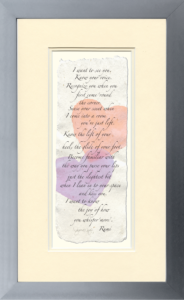 I want to see you,
Know your voice,
Recognize you when you
first come 'round
the corner,
Sense your scent when
I come into a room
you've just left,
Know the lift of your
heel, the glide of your foot,
Become familiar with
the way you purse your lips
just the slightest bit
when I lean in to your space
and kiss you,
I want to know
the joy of how
you whisper more
Rumi